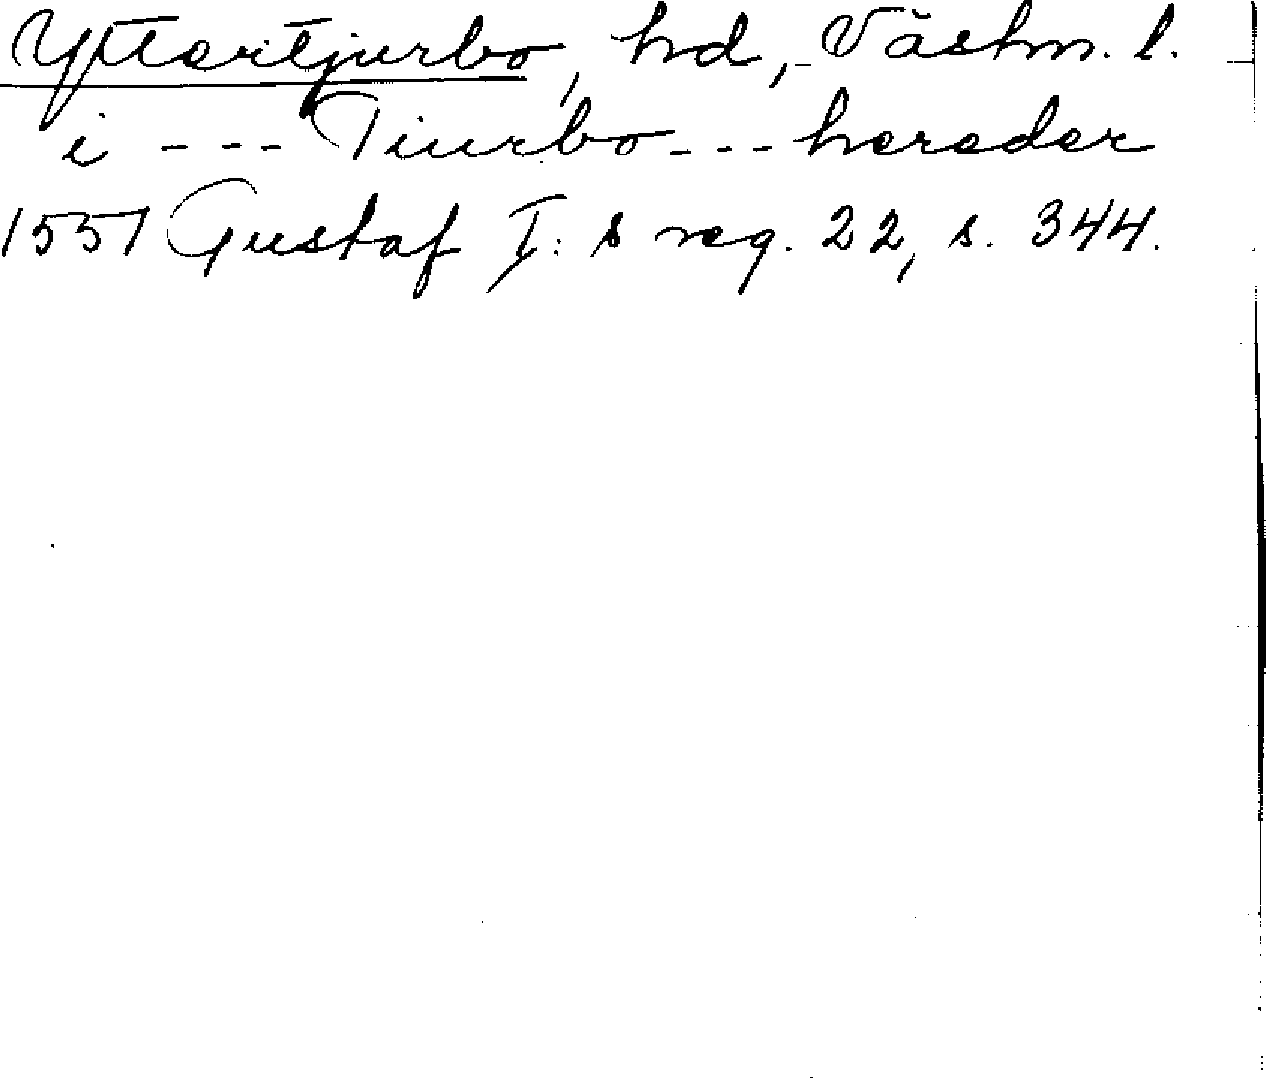 Yttertjurbo, hd, Västm. l.
i --- Tiurbo --- hereder
1551 Gustaf I: s reg. 22, s. 344.